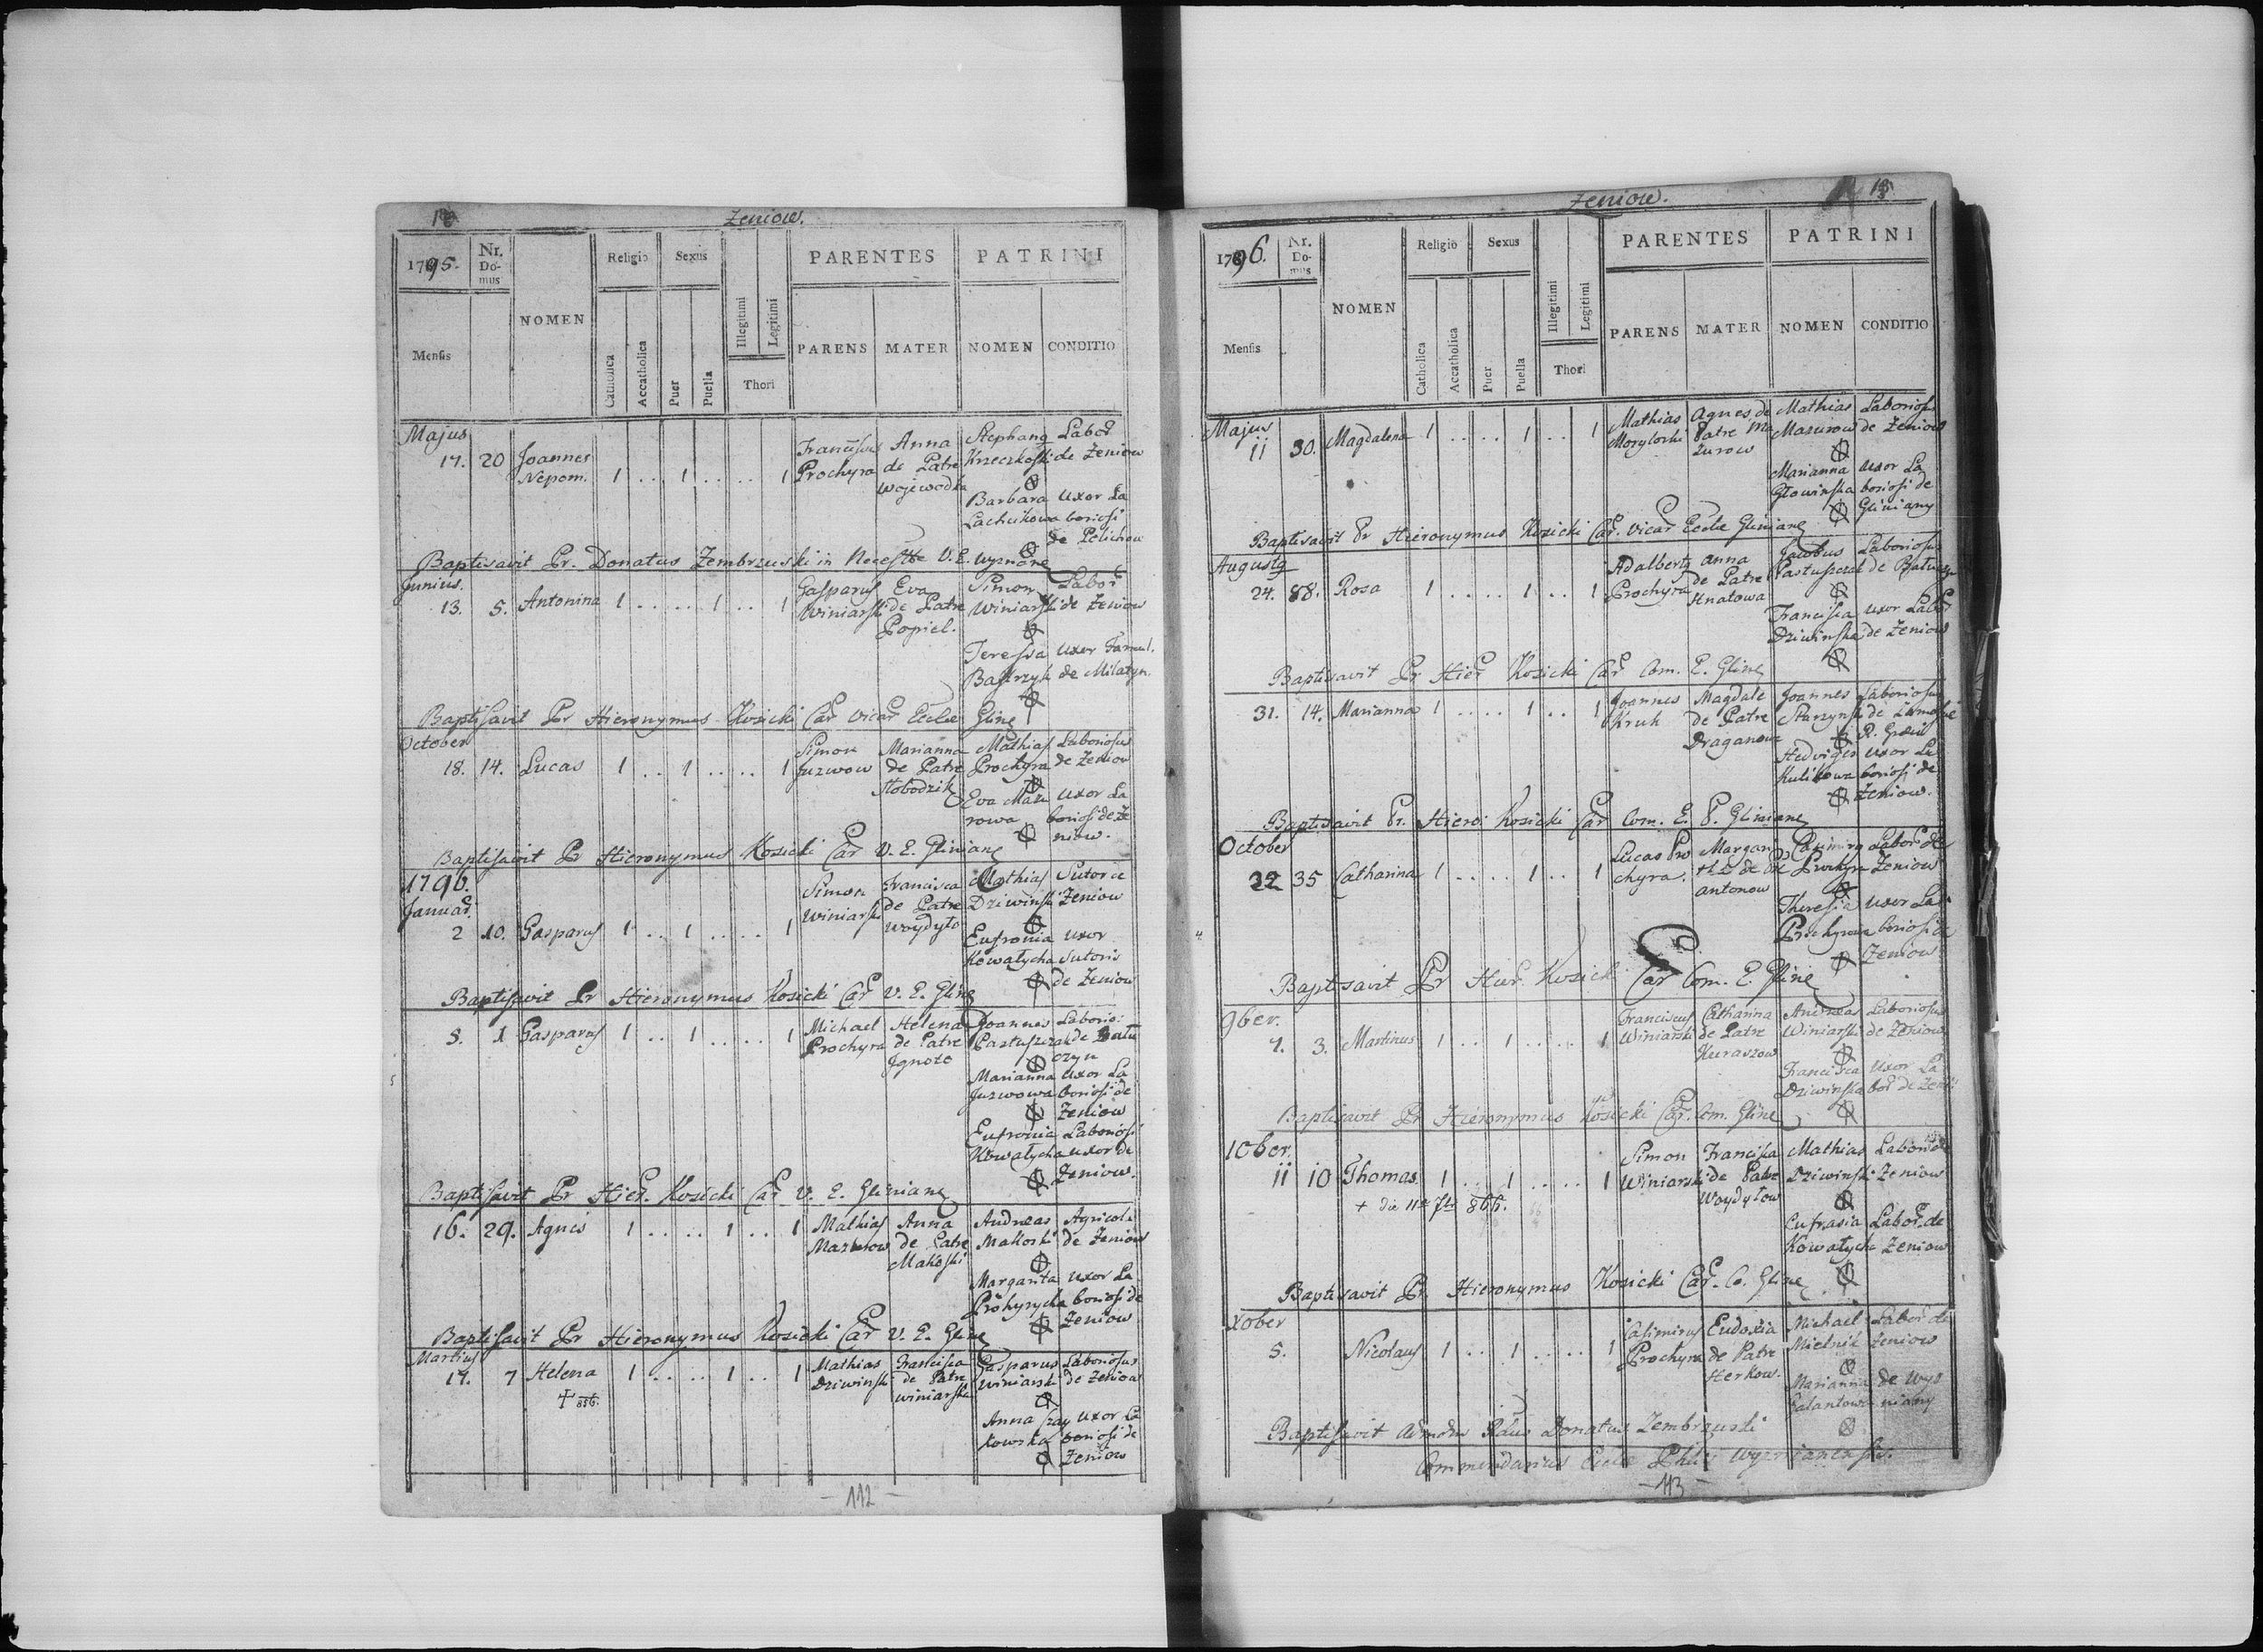 Zeniow.
1795.
Nr. Do- mus
NOMEN
Religio
Sexus
PARENTES
PATRINI
Mensis
Catholica
Accatholica
Puer
Puella
Illegitimi
Legitimi
Thori
PARENS
MATER
NOMEN
CONDITIO
Majus
17. 20 Joannes Nepom. 1 .. 1 .. .. 1
Franciscus Prochyra
Anna de Patre Wojewodka
Stephang Krzeczkoski
Labor de Zeniow
Barbara Lachcikowa
Uxor La boriosi de Pelichow
Baptisavit Pr. Donatus Zembrzuski in Necesstte V. E. Wyznane
Junius.
13. 5. Antonina 1 .. .. 1 .. 1
Gasparus Winiarski
Eva de Patre Popiel.
Simon Winiarski
Labor de Zeniow
Teressa Bastrzyk
Uxor Famul. de Milatyn.
Baptisavit Pr Hieronymus Kosicki Car Vicar Eccle Gline
October
18. 14. Lucas 1 .. 1 .. .. 1
Simon Juzwow
Marianna de Patre Slobodzik
Mathias Prochyra
Laboriosus de Zeniow
Eva Mazu rowa
Uxor La boriosi de Ze niow.
Baptisavit Pr Hieronymus Kosicki Car V. E. Gliniane
1796.
Januar.
2 10. Gasparus 1 .. 1 .. .. 1
Simon Winiarski
Francisca de Patre Woydylo
Mathias Dziwinski
Sutor de Zeniow
Eufronia Kowalycha
Uxor Sutoris de Zeniow
Baptisavit Pr Hieronymus Kosicki Car V. E. Gline
5. 1 Gasparus 1 .. 1 .. .. 1
Michael Prochyra
Helena de Patre Ignoto
Joannes Pastuszcak
Laborio: de Batu czyn
Marianna Juzwowa
Uxor La boriosi de Zeniow
Eufronia Kowalycha
Laboriosi uxor de Zeniow.
Baptisavit Pr Hier. Kosicki Car V. E. Gliniane
16. 29. Agnes 1 .. .. 1 .. 1
Mathias Mazurow
Anna de Patre Makoski
Andreas Makoski
Agricola de Zeniow
Margarita Prohyrycha
Uxor La boriosi de Zeniow
Baptisavit Pr Hieronymus Kosicki Car V. E. Gline
Martius
17. 7 Helena 1 .. .. 1 .. 1
+ 856.
Mathias Dziwinski
Francisca de Patre Winiarski
Gasparus Winiarski
Laboriosus de Zeniow
Anna Szay kowska
Uxor La boriosi de Zeniow
- 112 -
Zeniow.
1796.
Nr. Do- mus
NOMEN
Religio
Sexus
PARENTES
PATRINI
Mensis
Catholica
Accatholica
Puer
Puella
Illegitimi
Legitimi
Thori
PARENS
MATER
NOMEN
CONDITIO
Majus
11 30. Magdalena 1 .. .. 1 .. 1
Mathias Mozyloski
Agnes de Patre Ma zurow
Mathias Mazurow
Laboriosus de Zeniow
Marianna Glowinska
Uxor La boriosi de Gliniany
Baptisavit Pr Hieronymus Kosicki Car. Vicar Eccle Gliniane
Augustg
24. 88. Rosa 1 .. .. 1 .. 1
Adalbertg Prochyra
Anna de Patre Hnatowa
Jacobus Pastuszcak
Laboriosus de Batuczyn
Francisca Dziwinska
Uxor Labor de Zeniow
Baptisavit Pr Hier Kosicki Car Com. E. Gline
31. 14. Marianna 1 .. .. 1 .. 1
Joannes Kruk
Magdale de Patre Draganow
Joannes Starzynski
Laboriosus de
Hedviges Kulikowa
Uxor La boriosi de Zeniow.
Baptisavit Pr. Hiero: Kosicki Car Com. E. P. Gliniane
October
22 35 Catharina 1 .. .. 1 .. 1
Lucas Pro chyra.
Margari tha de Pre antonow
Casimirg Prochyra
Labor de Zeniow
Theresia Prochyrowa
Uxor La boriosi de Zeniow
Baptisavit Pr Hier. Kosicki Car Com. E. Gline
9ber.
7. 3. Martinus 1 .. 1 .. .. 1
Franciscus Winiarski
Catharina de Patre Kuraszow
Andreas Winiarski
Laboriosus de Zeniow
Francisca Dziwinska
Uxor La bor de Zeni
Baptisavit Pr Hieronymus Kosicki Car. Com. Gline
10ber.
11 10 Thomas 1 .. 1 .. .. 1
+ die 11a 7br 866.
Simon Winiarski
Francisca de Patre Woydylow
Mathias Dziwinski
Labor de Zeniow
Eufrasia Kowalycha
Labor. de Zeniow
Baptisavit Pr. Hieronymus Kosicki Car. Co. Gline
Xober
5. Nicolaus 1 .. 1 .. .. 1
Casimirus Prochyra
Eudoxia de Patre Herkow.
Michael Mielnik
Labor de Zeniow
Marianna Galantowa
de Wyz niany
Baptisavit Admdm Rdus Donatus Zembrzuski
Commendarius Eccle Phlis Wyznianensis.
- 113 -